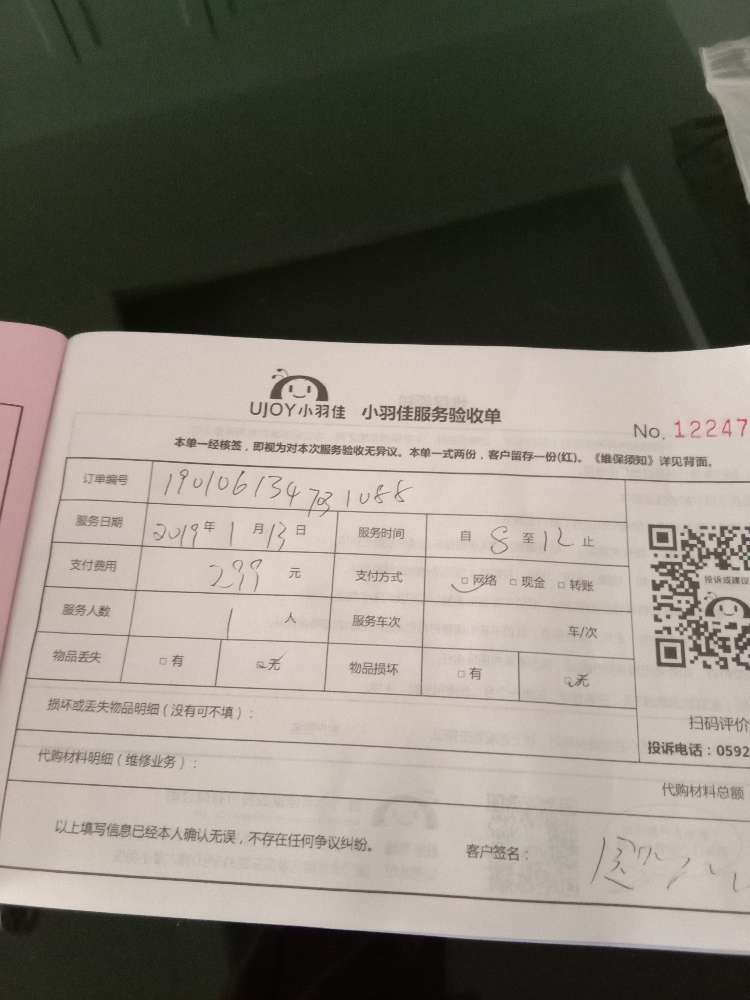 UJOY小羽佳 小羽佳服务验收单
No. 12247
本单一经核签，即视为对本次服务验收无异议。本单一式两份，客户留存一份(红)。《维保须知》详见背面。
订单编号
服务日期 2019年1月13日 服务时间 自 8 至 12 止
支付费用 299 元 支付方式 网络 现金 转账
服务人数 1 人 服务车次 车/次
物品丢失 有 无 物品损坏 有 无
投诉或建议
损坏或丢失物品明细（没有可不填）：
扫码评价
投诉电话：0592
代购材料明细（维修业务）：
代购材料总额
以上填写信息已经本人确认无误，不存在任何争议纠纷。 客户签名：